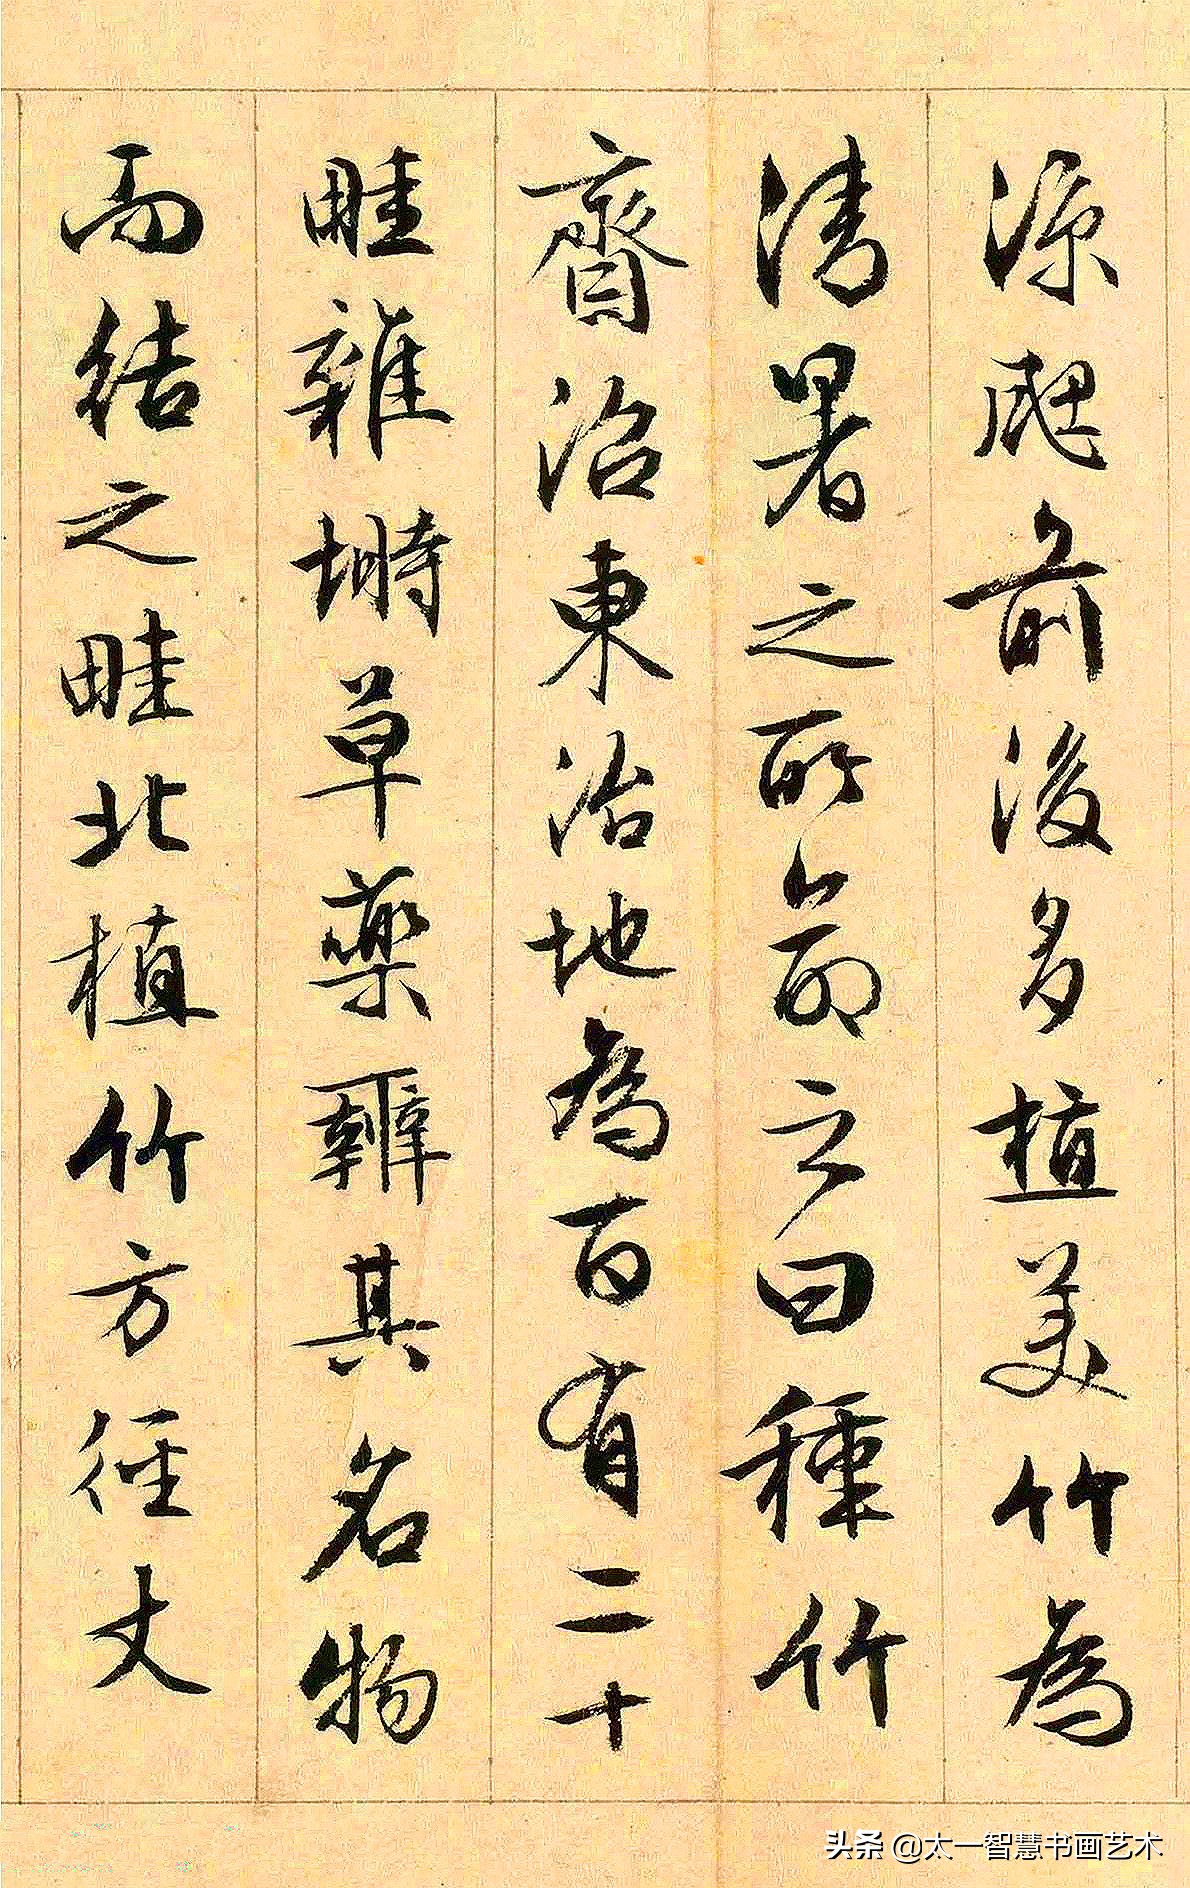 涼颸前後多植美竹為
清暑之所命之曰種竹
齋沼東治地為百有二十
畦雜塒草藥辨其名物
而結之畦北植竹方徑丈
头条 @太一智慧书画艺术